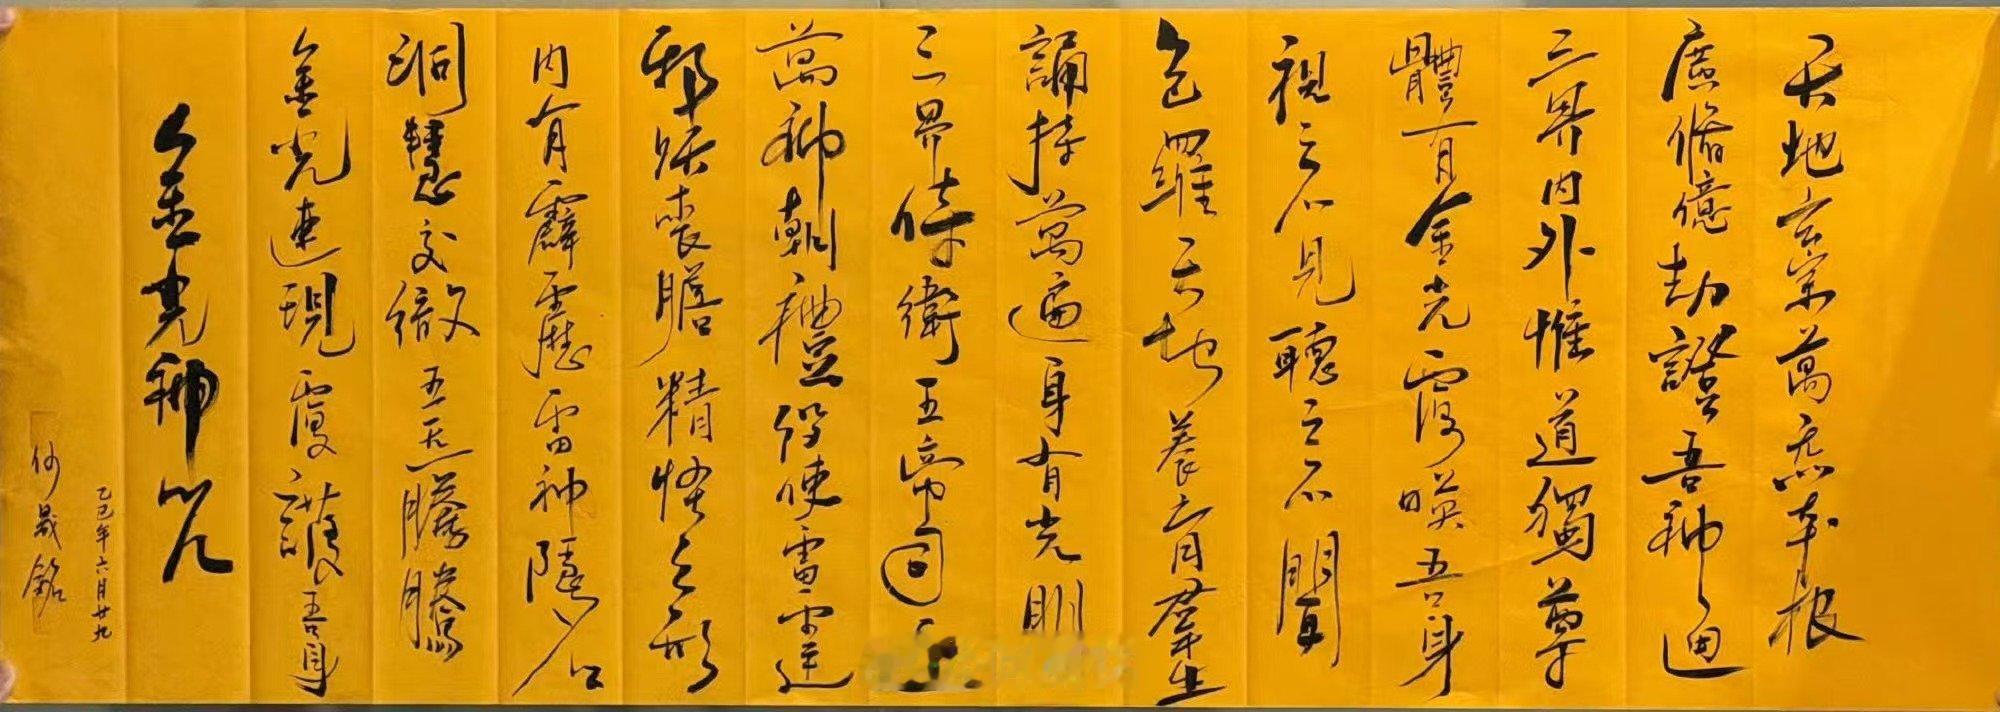 天地玄宗萬炁本根
廣脩億劫證吾神通
三界內外惟道獨尊
體有金光覆暎吾身
視之不見聽之不聞
包羅天地養育群生
誦持萬遍身有光明
三界侍衛五帝司
萬神朝禮役使雷霆
邪妖喪膽精怪亡形
內有霹靂雷神隱名
洞慧交徹五炁騰騰
金光速現覆護吾身
金光神咒
乙巳年六月廿九
何晟銘